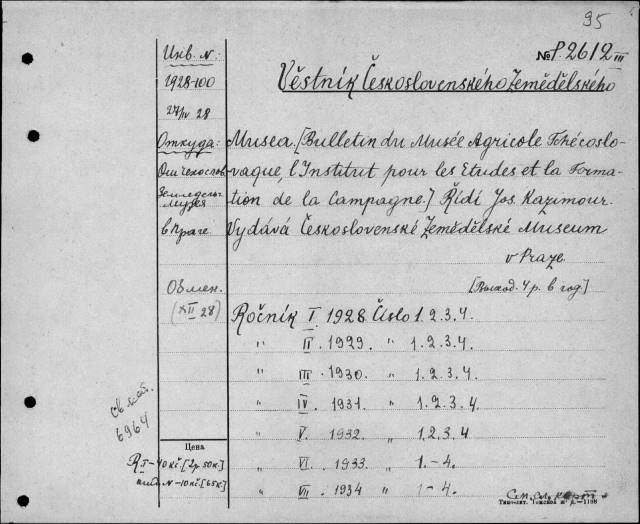 95
Инв. N:
№ P. 2612 III
1928-100
Věstník Československého Zemědělského
27/IV 28
Откуда:
Musea. [Bulletin du Musée Agricole Tchécoslo-
От чехослов.
vaque, l'Institut pour les Etudes et la Forma-
Земледельч.
музея
tion de la Campagne.] Řídí Jos. Kazimour.
в Праге
Vydává Československé Zemědělské Museum
v Praze
Обмен.
[Выход. 4 р. в год]
(XII 28)
Ročník I. 1928. Číslo 1. 2. 3. 4.
" II. 1929. " 1. 2. 3. 4.
" III. 1930. " 1. 2. 3. 4.
" IV. 1931. " 1. 2. 3. 4.
Св. каб.
6964
" V. 1932. " 1. 2. 3. 4
Цена
R I - 40 kč. [2р 50к.]
" VI. 1933. " 1. - 4.
N - 10 kč. [65к.]
" VII. 1934 " 1 - 4.
См. сл. карт
Типо-лит. Томской ж. д.—1198